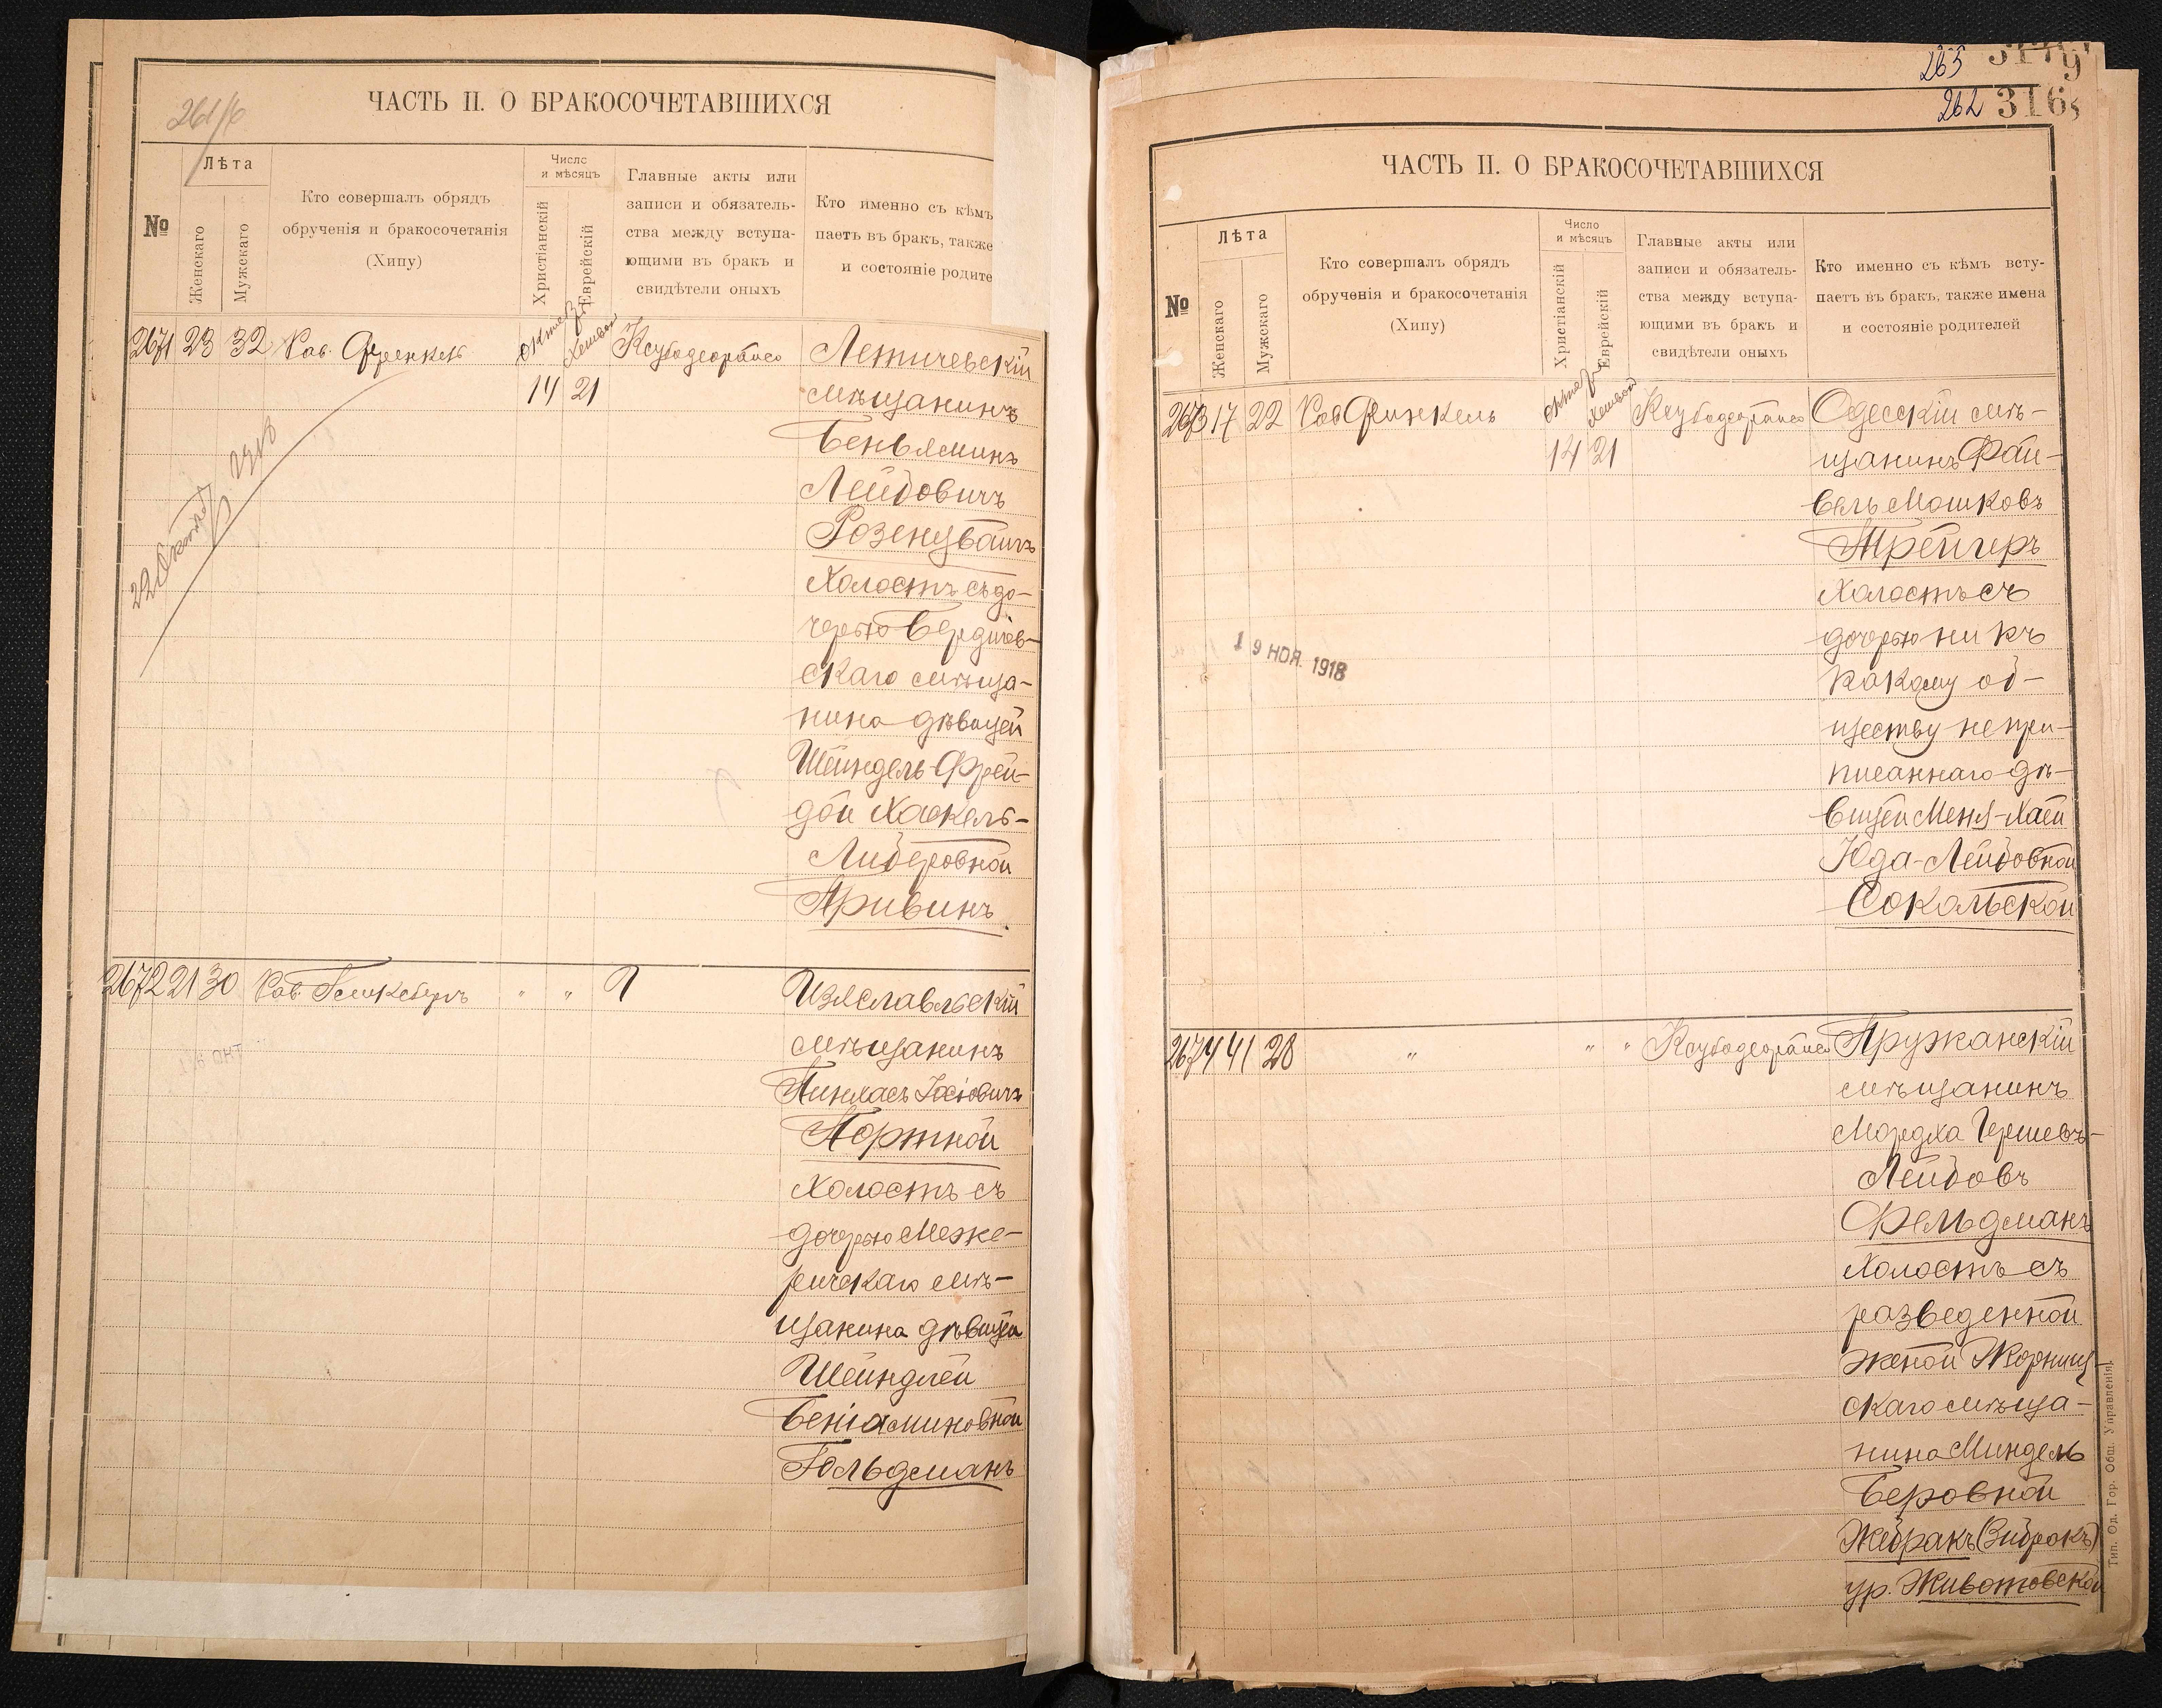 261/6
ЧАСТЬ II. О БРАКОСОЧЕТАВШИХСЯ
№
Лѣта
Женскаго
Мужскаго
Кто совершалъ обрядъ
обрученія и бракосочетанія
(Хипу)
Число
и мѣсяцъ
Христіанскій
Еврейскій
Главные акты или
записи и обязатель-
ства между вступа-
ющими въ бракъ и
свидѣтели оныхъ
Кто именно съ кѣмъ
паетъ въ бракъ, также
и состояніе родите
2671 23 32 Рав. Френкель
14 21
Летичевскій
мѣщанинъ
Беньяминъ
Лейбовичъ
Розенцвайгъ
Холостъ съ до-
черью Бердичев-
скаго мѣща-
нина дѣвицей
Шейндель-Фрей-
дой Хаскель-
Либеровной
Привинъ
22 Октяб 1918
2672 21 30 Рав.
" "
Изяславльскій
мѣщанинъ
Пинхасъ Іосіовичъ
Портной
Холостъ съ
дочерью Меже-
ричскаго мѣ-
щанина дѣвицей
Шейндлей
Беніаминовной
Гольдманъ
16 ОКТ
265
262 3168
ЧАСТЬ II. О БРАКОСОЧЕТАВШИХСЯ
№
Лѣта
Женскаго
Мужскаго
Кто совершалъ обрядъ
обрученія и бракосочетанія
(Хипу)
Число
и мѣсяцъ
Христіанскій
Еврейскій
Главные акты или
записи и обязатель-
ства между вступа-
ющими въ бракъ и
свидѣтели оныхъ
Кто именно съ кѣмъ всту-
паетъ въ бракъ, также имена
и состояніе родителей
2673 17 22 Рав Финкель
14 21
Одесскій мѣ-
щанинъ Фай-
вель Мошковъ
Трейгеръ
Холостъ съ
дочерью ни къ
какому об-
ществу непри-
писаннаго дѣ-
вицей Меня-Хаей
Юда-Лейбовной
Сокольской
19 НОЯ. 1918
2674 41 28 " " "
Пружанскій
мѣщанинъ
Мордха Гершевъ-
Лейбовъ
Фельдманъ
Холостъ съ
разведенной
женой Жорнищ-
скаго мѣща-
нина Миндель
Беровной
Жебракъ (Зибракъ)
ур. Животовской
Тип. Од. Гор. Общ. Управленія